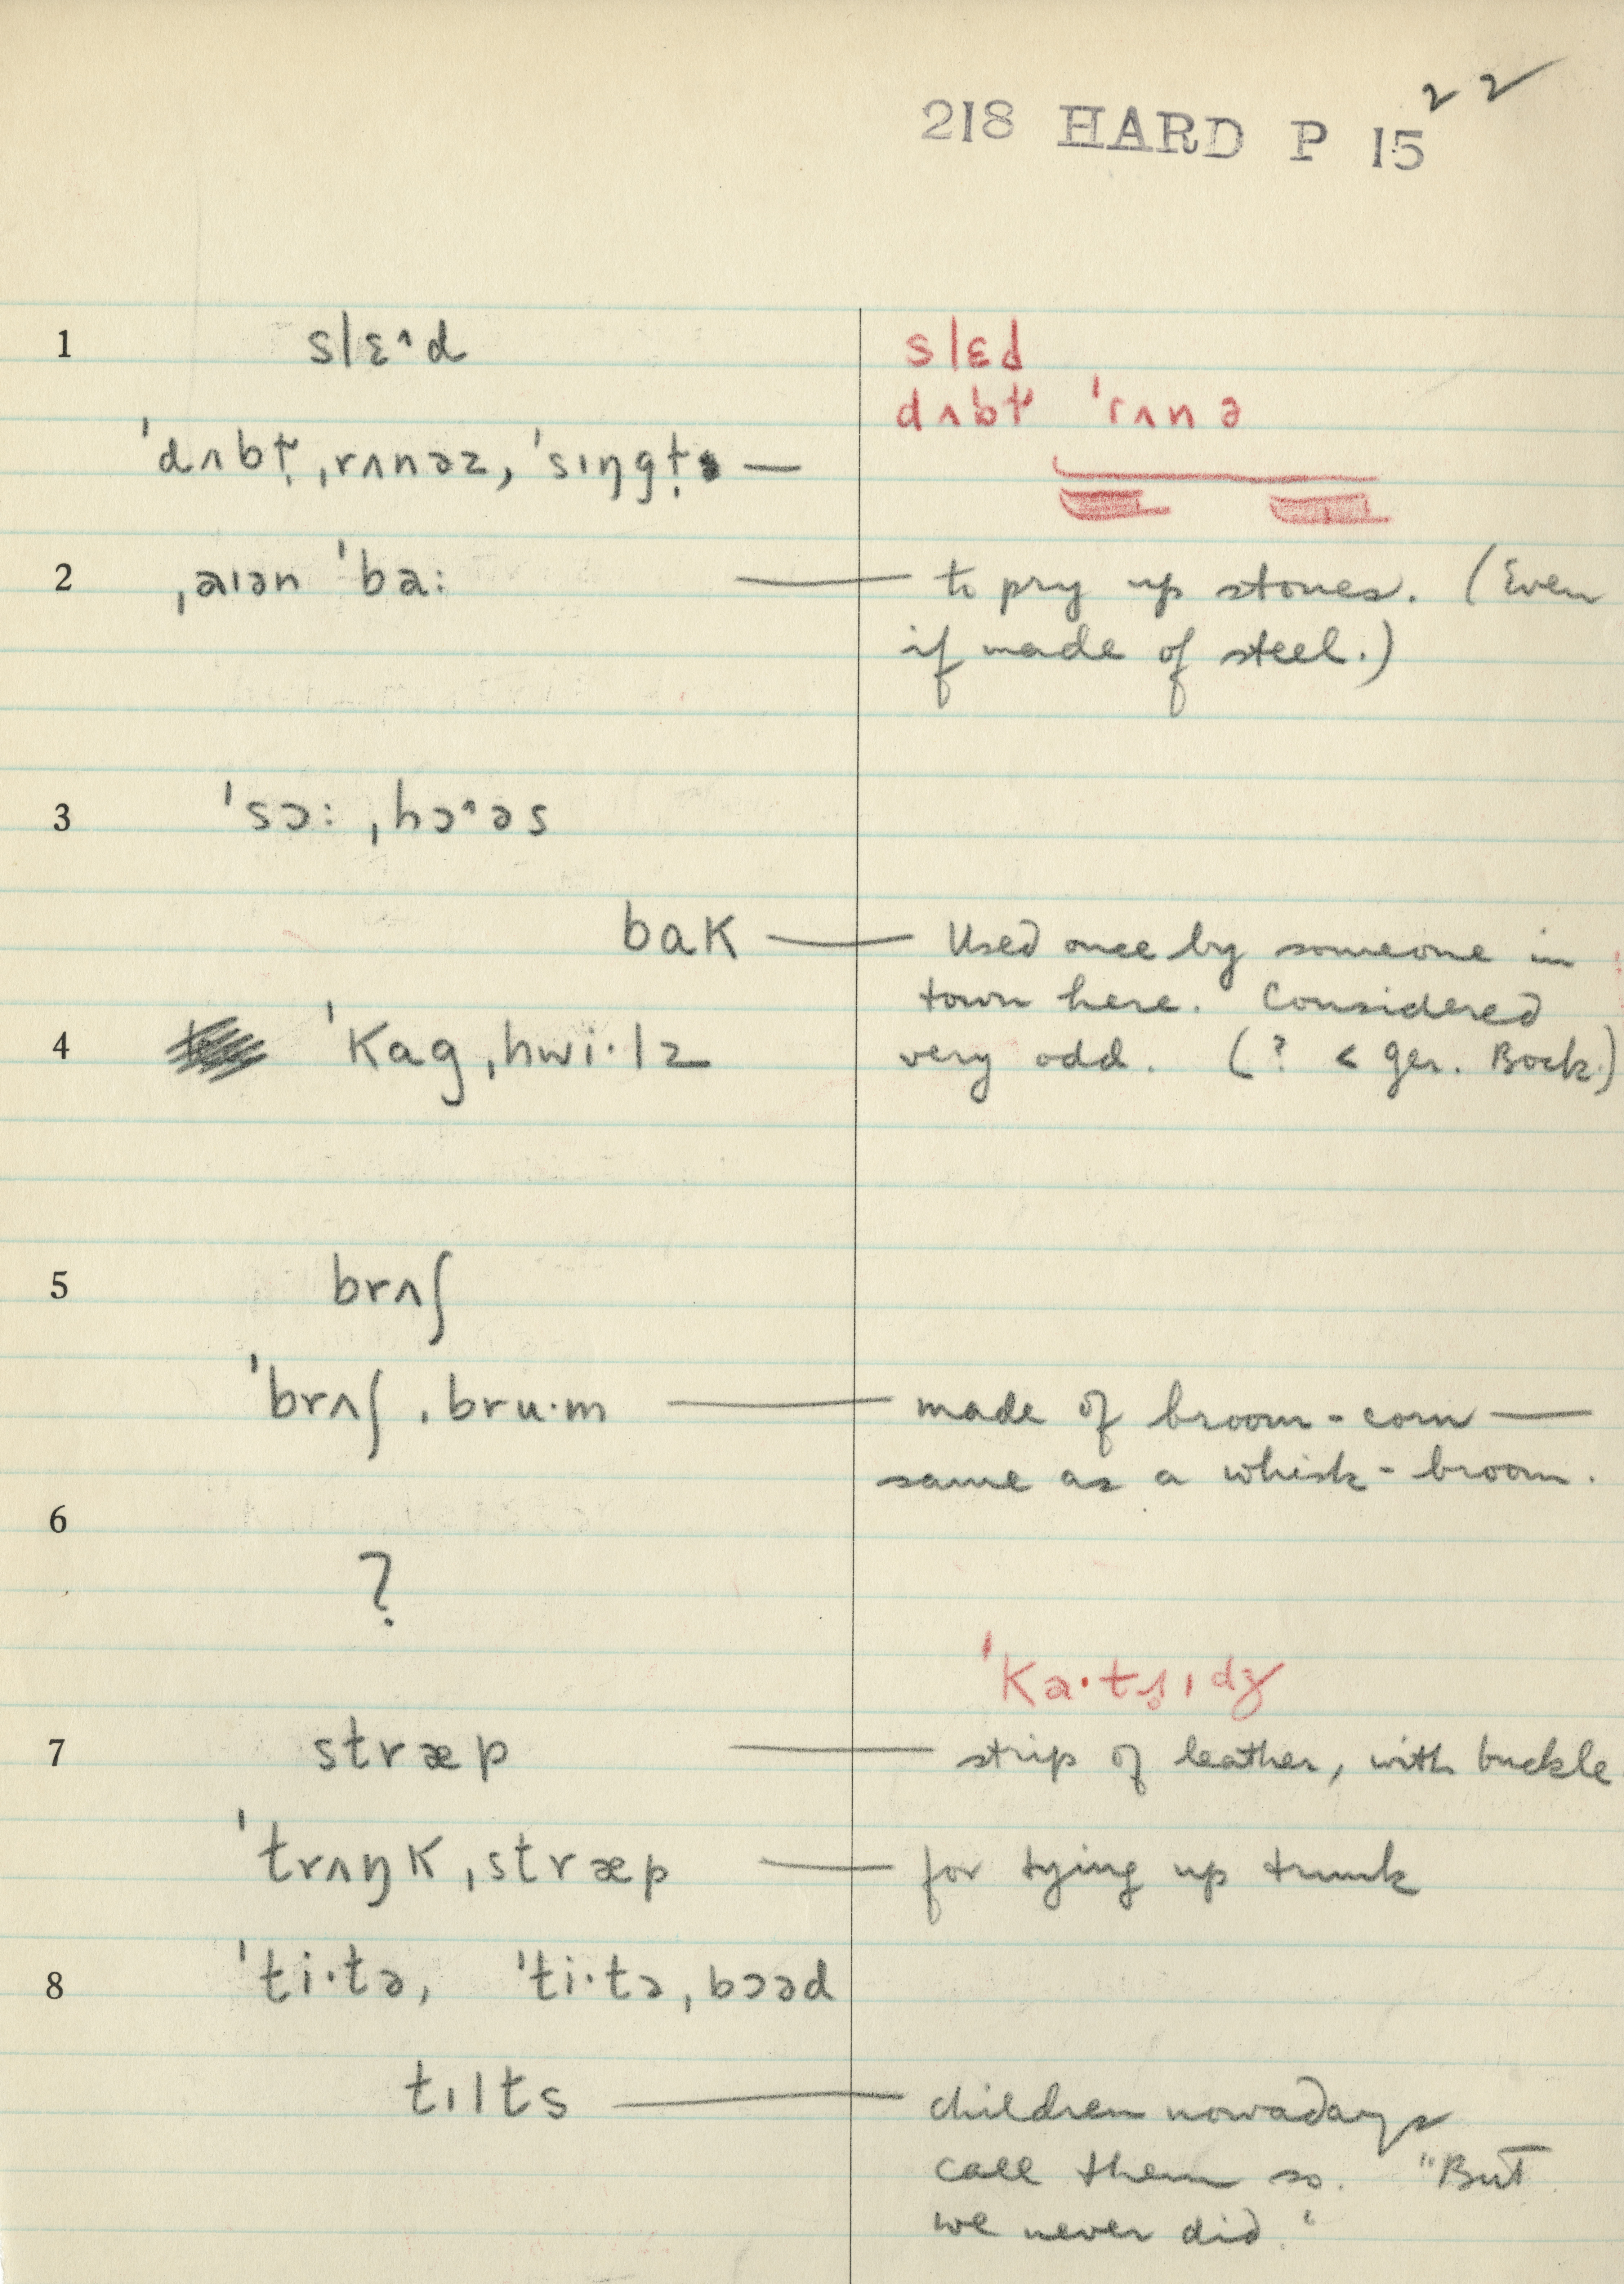 22
218 HARD P 15
1 slɛ˄d
slɛd
dʌbɫ ˈrʌnə
ˈdʌbɫ̣ ˌrʌnəz, ˈsɪŋgɫ̣ —
2 ˌaɪən ˈba: — to pry up stones. (Even
if made of steel.)
3 ˈsɔ: ˌhɔ˄əs
bak — Used once by someone in
town here. Considered
4 ˈkagˌhwi·lz very odd. (? < Ger. Bock.)
5 brʌʃ
ˈbrʌʃ ˌbru·m — made of broom-corn —
same as a whisk-broom.
6
?
7 stræp — strip of leather, with buckle
ˈtrʌŋk ˌstræp — for tying up trunk
8 ˈti·tə, ˈti·tə ˌbɔəd
tɪlts — children nowadays
call them so. "But
we never did."